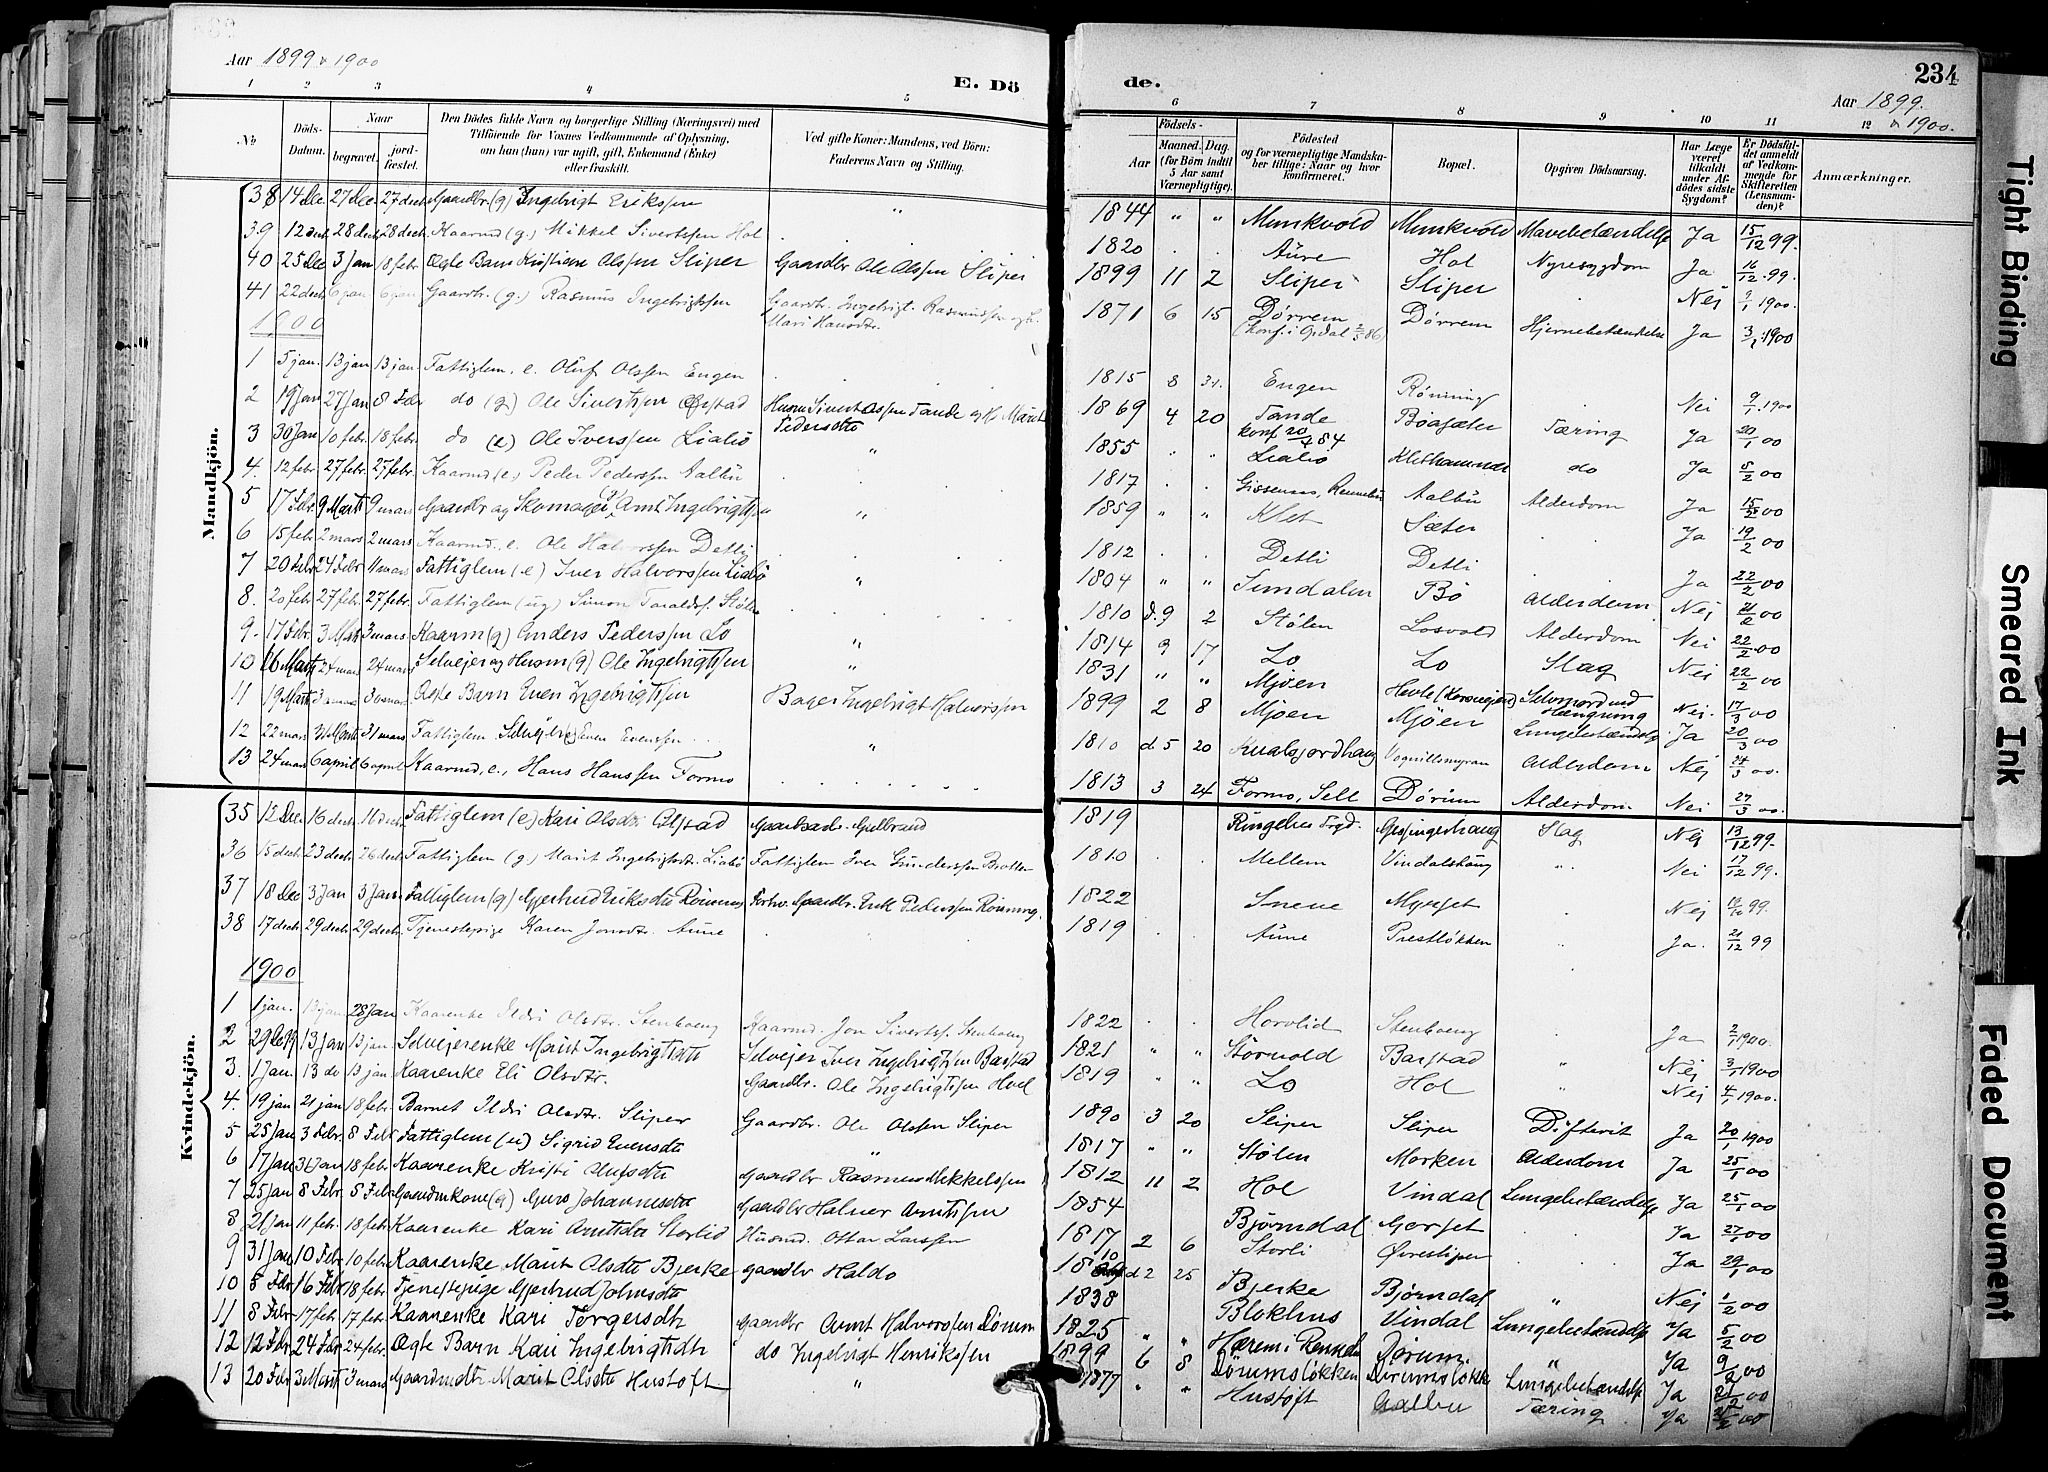 Aar 1899 & 1900
E. Dö
de.
234
Aar 1899.
& 1900.
1 2 3 4 5
6 7 8 9 10 11 12
No
Döds-
Datum.
Naar
begravet.
jord-
fæstet.
Den Dödes fulde Navn og borgerlige Stilling (Næringsvei) med
Tilföiende for Voxnes Vedkommende af Oplysning,
om han (hun) var ugift, gift, Enkemand (Enke)
eller fraskilt.
Ved gifte Koner: Mandens, ved Börn:
Faderens Navn og Stilling.
Födsels-
Aar
Maaned. Dag.
(for Börn indtil
5 Aar samt
Værnepligtige).
Födested
og for værnepligtige Mandska-
ber tillige: Naar og hvor
konfirmeret.
Bopæl.
Opgiven Dödsaarsag.
Har Læge
været
tilkaldt
under Af-
dödes sidste
Sygdom?
Er Dödsfal-
det anmeldt
af Vedkom-
mende for
Skifteretten
(Lensman-
den)?
Anmærkninger.
Mandkjön.
38 14 Dec 27 Dec 27 dech Gaardbr. (g) Ingebrigt Erikssen " 1844 " " Munkvold Munkvold Mavebetændelse Ja 15/12 99.
39 12 dech 28 dech 28 dech. Kaarmd (g.) Mikkel Sivertssen Hol 1820 . . Aune Hol Nyresygdom Ja 16/12 99.
40 25 Dec 3 Jan 18 febr. Ægte Barn Kristian Olssen Sliper Gaardbr Ole Olssen Sliper 1899 11 2 Sliper Sliper Nej 1900.
41 22 dech 6 jan 6 jan Gaardbr. (g.) Rasmus Ingebrigtssen Gaardbr. Ingebrigt Rasmussen og h.
Mari Hansdtr. 1871 6 15 Dørrem Dørrem Hjernebetændelse Ja 3/1 1900
(konf. i Opdal 86)
1900
1 5 jan. 13 jan 13 jan Fattiglem. e. Oluf Olssen Engen 1815 8 31. Engen Rönning . Nei 9/1 1900
2 19 Jan 27 Jan 8 Febr do (g) Ole Sivertssen Husm Sivert Olssen Tande og K. Marit
Pedersdtr 1869 4 20 Tande Böasæter Tæring Ja 20/1 00
konf 84
3 30 Jan 10 febr. 18 febr. do (e) Ole Iverssen Lialiö " 1855 . . Lialiö Klethammer do Ja 5/2 00
4. 12 febr. 27 febr. 27 febr. Kaarmd (e) Peder Pederssen Aalbu 1817 . . Aalbu Alderdom Ja 15/2 00
5 17 Febr. 9 Marts 9 mars Gaardbr og Skomager Arnt Ingebrigtssen " 1859 " " Klet Sæter . Ja 19/2 00
6 15 febr. 2 mars 2 mars Kaarmd. e. Ole Halvorssen Detli 1812 . . Detli Detli . Ja 22/2 00
7 20 Febr 24 Febr 11 mars Fattiglem (e) Iver Halvorssen Lialiö " 1804 " " Sundalen Bö Alderdom Nej 21/2 00
8. 20 febr. 27 febr. 27 febr. Fattiglem (ug) Simon Taraldss. Stølen 1810 d. 9 2 Stölen Losvold Alderdom Nei 22/2 00
9. 17 Febr. 3 Marts 3 mars. Kaarm (g) Anders Pederssen Lo " 1814 9 17 Lo Lo Slag Nej 22/2 00
10 16 Marts 24 mars 24 mars Selvejer og Husm (g) Ole Ingebrigtssen " 1831 " " Mjøen Selvmord ved
Hængning Nei. 17/3 00
11 19 Marts 30 mars Ægte Barn Even Ingebrigtssen Bager Ingebrigt Halvorssen 1899 2 8 Mjøen Mjøen Lungebetændelse Ja 20/3 00
12 22 mars 31 Marts 31 mars Fattiglem. Selvejer(e) Even Evenssen " 1810 d. 5 20 Alderdom Nej 24/3 00.
13 24 mars 6 april 6 april Kaarmd, e., Hans Hanssen Formo 1813 3 24 Formo, Sell Dörum Alderdom. Nei 27/3 00.
Kvindekjön.
35 12 Dec 16 dech 16 dech. Fattiglem (e) Kari Olsdtr 1819 Slag Nej 13/12 99.
36 15 dech 23 dech 26 dech. Fattiglem (g.) Marit Ingebrigtsdtr. Lialiö Fattiglem Iver Gunderssen 1810 . . Mellem Vindalshaug " Nei 17/12 99.
37 18 Dec 3 Jan 3 Jan. Fattiglem (g) Gjertrud Eriksdtr Rönning Forhv. Gaardbr. Erik Pederssen Rönning. 1822 . . Sneve Nej 99.
38 17 dech 29 dech. 29 dech. Tjenestepige Karen Jonsdtr. Aune . 1819 . . Aune Prestløkken " Ja. 21/12 99
1900
1 1 jan. 13 jan 28 Jan Kaarenke Ildri Olsdtr. Stenboeng Kaarmd. Jon Sivertss. Stenboeng 1822 . . Horvlid Stenboeng . Ja 2/1 1900.
2 13 Jan 13 jan. Selvejerenke Marit Ingebrigtsdtr Selvejer Iver Ingebrigtssen Barstad 1821 " " Störvold Barstad " Nej 3/1 1900
3. 1 Jan. 13 do 13 jan Kaarenke Eli Olsdtr. Gaardbr. Ole Ingebrigtssen Hoel 1819 " " Lo Hol " Nej 4/1 1900.
4. 19 jan 21 jan 18 febr. Barnet Ildri Olsdtr. Sliper Gaardbr. Ole Olssen Sliper 1890 3 20 Sliper Sliper Difterit Ja 20/1 1900
5 25 Jan 3 Febr. 8 Febr Fattiglem (e) Sigrid Evensdtr " 1817 " " Stölen Morken Alderdom Ja 25/1 00
6 17 Jan 31 Jan 18 febr. Kaarenke Kristi Olufsdtr Gaardbr Rasmus Mikkelssen 1812 11 2 Hol Vindal Lungebetændelse Ja 25/1 00
7 25 Jan 8 Febr. 8 Febr Gaardmkone (g) Guro Johannesdtr Gaardbr Halvor Arntssen 1854 Bjørndal Gorset . Ja 27/1 00
8 21 jan 11 febr. 18 febr. Kaarenke Kari Arntsdtr Storlid Husmd. Ottar Larssen 1817 2 6 Storli Øvresliper . Ja 29/1 00
9 31 Jan 10 Febr 10 febr. Kaarenke Marit Olsdtr Bjerke Gaardbr Haldo d 2 25 Bjerke Bjørndal " Nej 1/2 00
10 8 Febr 16 Febr 18 febr. Tjenestepige Gjertrud Johnsdtr 1838 Blokhus Vindal Lungebetændelse Ja 5/2 00
11 8 Febr 17 febr 17 febr. Kaarenke Kari Torgersdtr Gaardbr Arnt Halvorssen Dörum 1825 " " Dörum. " Ja 9/2 00
12 12 Febr 24 Febr 24 febr. Ægte Barn Kari Ingebrigtsdtr do Ingebrigt Henrikssen 1899 6 8 Dörumsløkken Dörumsløkk Lungebetændelse Ja 21/2 00
13 20 Febr 3 Marts 3 mars Gaardmdtr Marit Olsdtr Hustoft. " 1877 " " Hustoft Aalbu Tæring Ja 25/2 00
Tight Binding
Smeared Ink
Faded Document